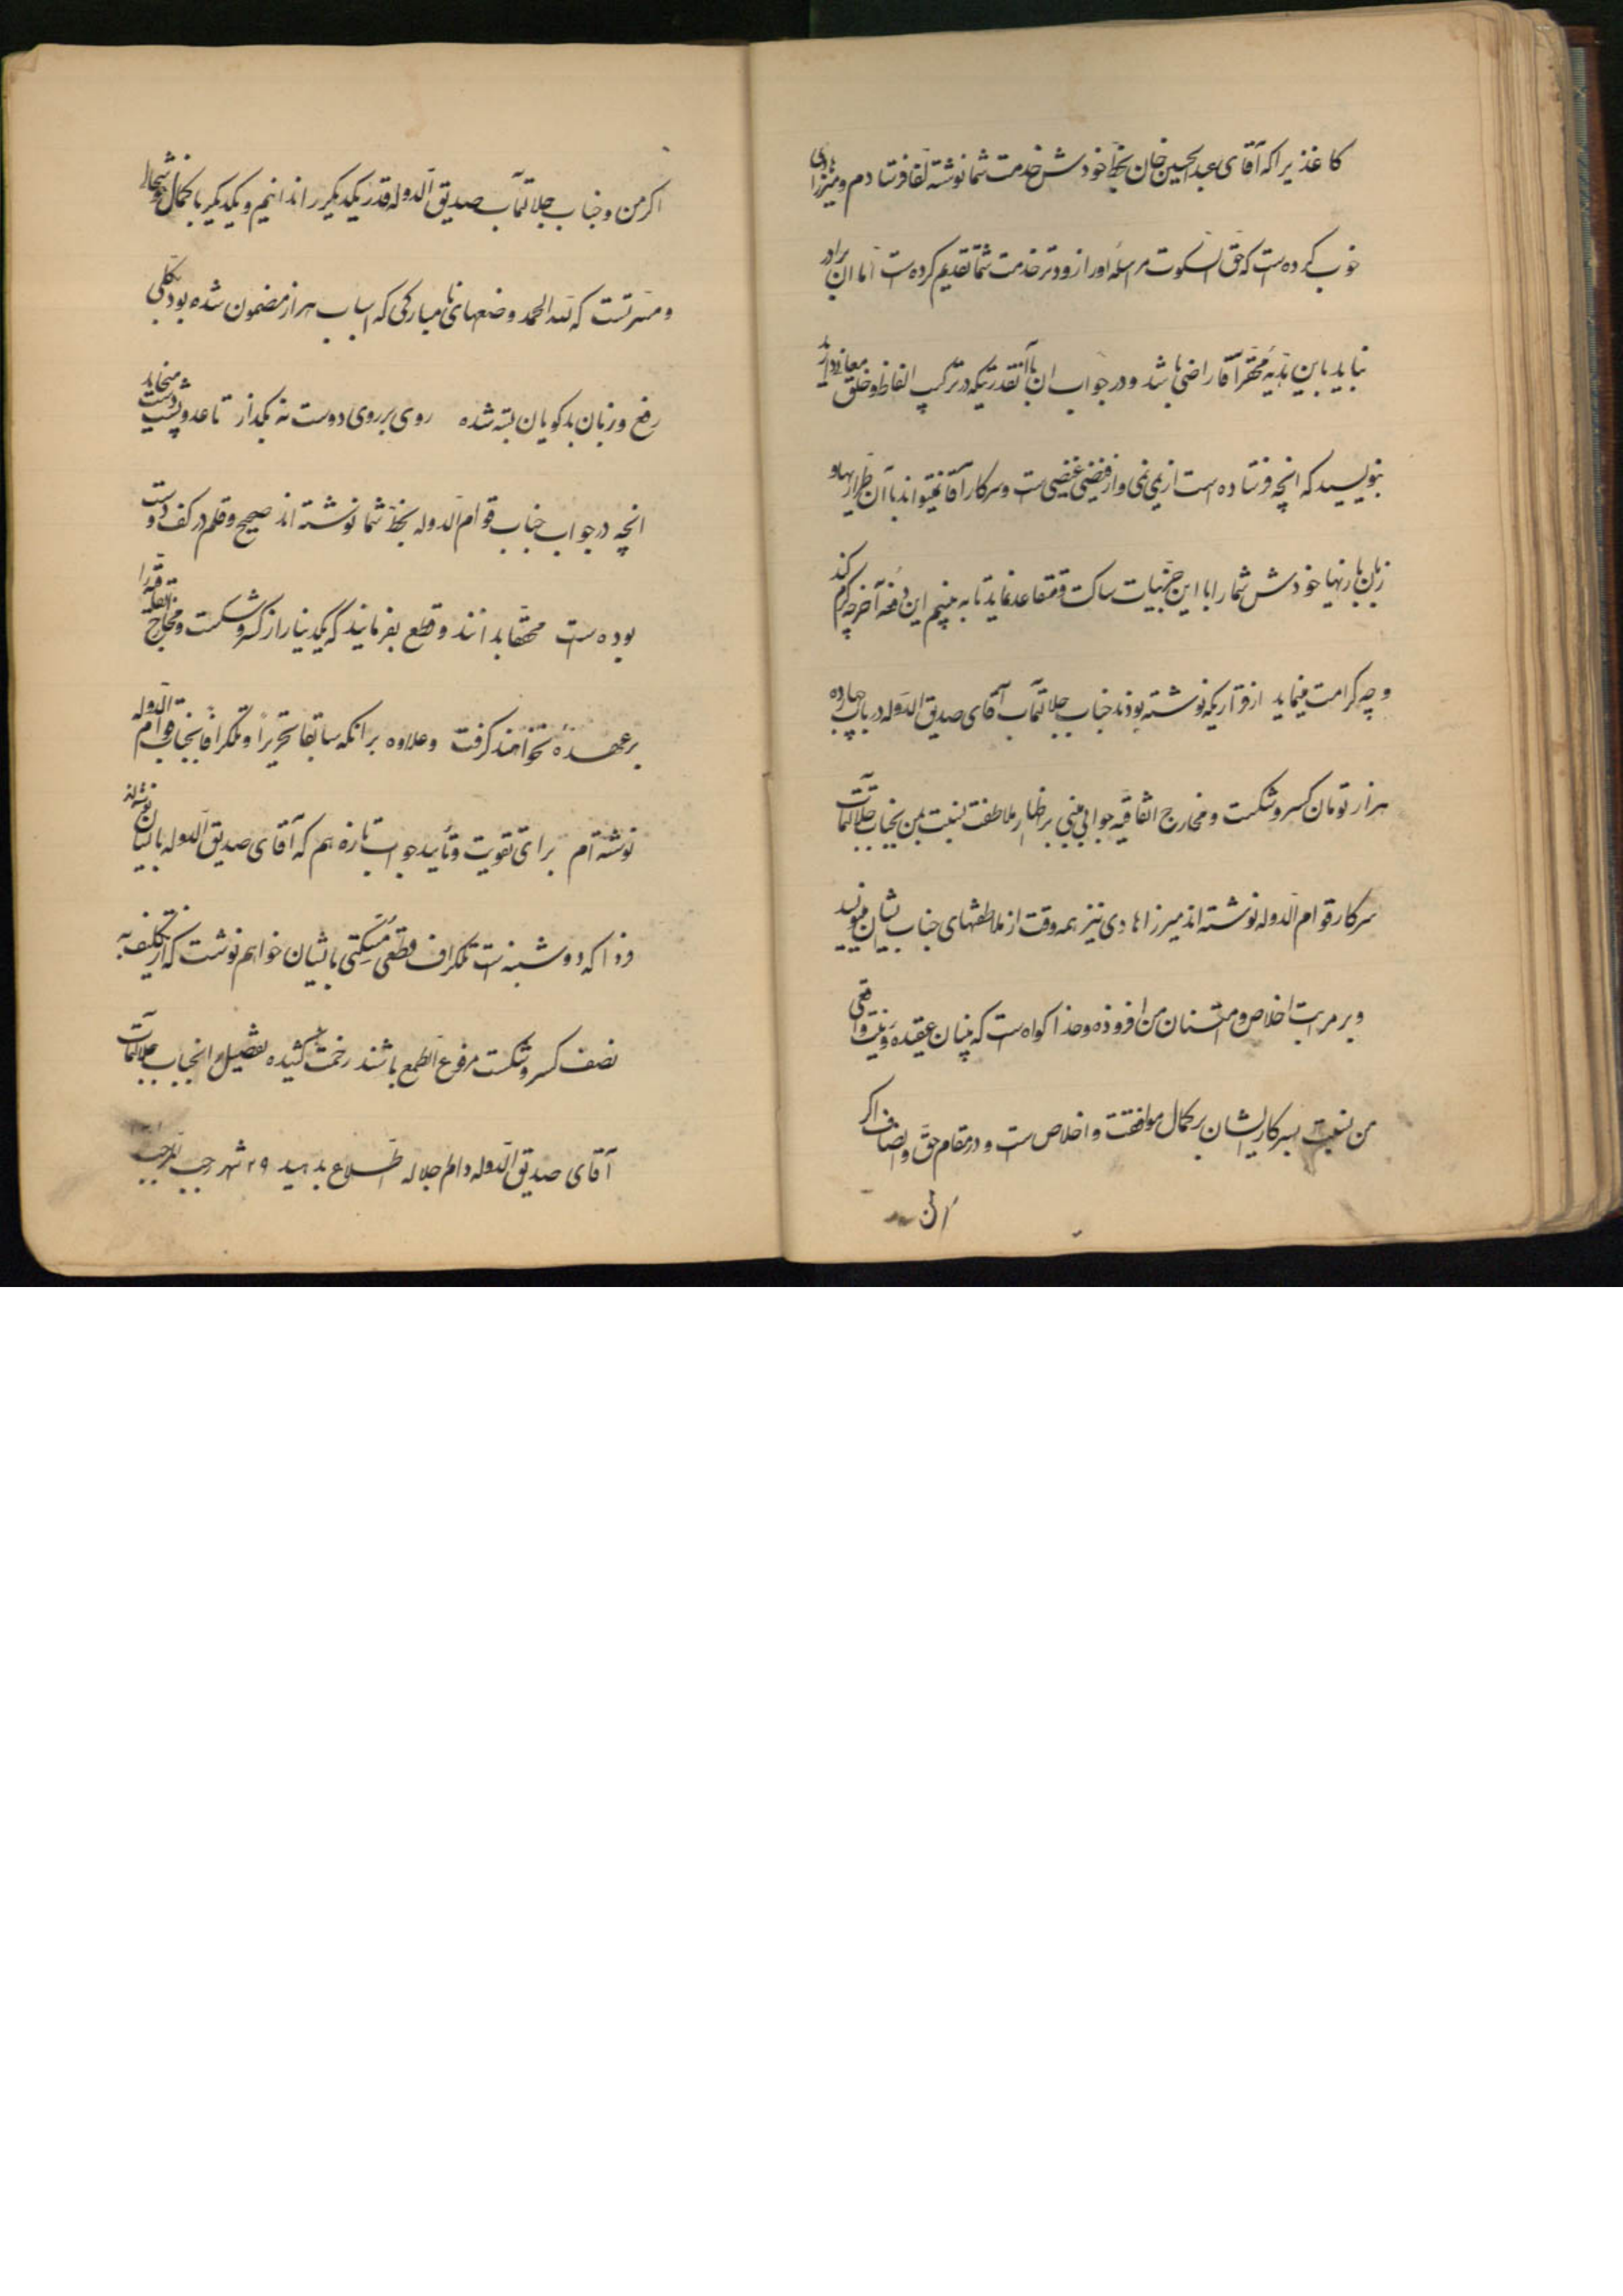 کاغذیرا که آقای عبدالحسین خان بخط خودش خدمت شما نوشته لفا فرستادم و میرزا هادی
خوب کرده است که حق السکوت مرسله اورا زودتر خدمت شما تقدیم کرده است اما ان برادر
نباید باین هدیه محقر آقا راضی باشد و در جواب ان باآنقدرتیکه در ترکیب الفاظ و خلق معانی دارید
بنویسید که انچه فرستاده است از یمی نمی و از فیضی غیضی است و سرکار آقا نمیتواند با آن طراریها و
زبان بازیها خودش شما را با این جزئیات ساکت و متقاعد نماید تا به بینیم این دفعه آخر چه کرم کند
و چه کرامت مینماید از قراریکه نوشته بودند جناب جلالتمآب آقای صدیق الدوله در باب چهارده
هزار تومان کسر و شکست و مخارج اتفاقیه جوابی مبنی بر اظهار ملاطفت نسبت بمن بجناب جلالتمآب
سرکار قوام الدوله نوشته اند میرزا هادی نیز همه وقت از ملاطفتهای جناب ایشان مینویسد
و بر مراتب اخلاص و امتنان من افزوده و خدا کواه است که بنیان عقیده و نیت واقعی
من نسبت بسرکار ایشان بر کمال موافقت و اخلاص است و در مقام حق و انصاف اکر
اکر من و جناب جلالتمآب صدیق الدوله قدر یکدیکر را ندانیم و یکدیکر با کمال خوشحالی
و مسرتست که لله الحمد وضعهای نامبارکی که اسباب هزار مضمون شده بود بکلی
رفع و زبان بدکویان بسته شده روی بر روی دوست نه بکذار تا عدو پشت دست میخاید
انچه در جواب جناب قوام الدوله بخط شما نوشته اند صحیح و قلم در کف دوست
بوده است محققا بدانند و قطع بفرمایند که یکدینار از کسر و شکست و مخارج
برعهده نخواهند کرفت و علاوه بر انکه سابقا تحریرا و تلکرافا بجناب قوام الدوله
نوشته ام برای تقویت و تأیید جواب تازه هم که آقای صدیق الدوله بایشان نوشته اند
فردا که دوشنبه است تلکراف قطعی مسکتی بایشان خواهم نوشت که از تکلیف به
نصف کسر و شکست مرفوع الطمع باشند زحمت کشیده تفصیل را بجناب جلالتمآب
آقای صدیق الدوله دام اجلاله اطلاع بدهید ۲۹ شهر رجب المرجب